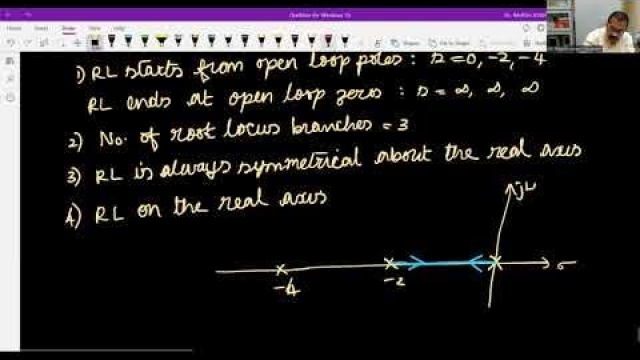 OneNote for Windows 10
Shapes
1) RL starts from open loop poles : s = 0, -2, -4
RL ends at open loop zeros : s = ∞, ∞, ∞
2) No. of root locus branches = 3
3) RL is always symmetrical about the real axis
4) RL on the real axis
jω
-4 -2 σ